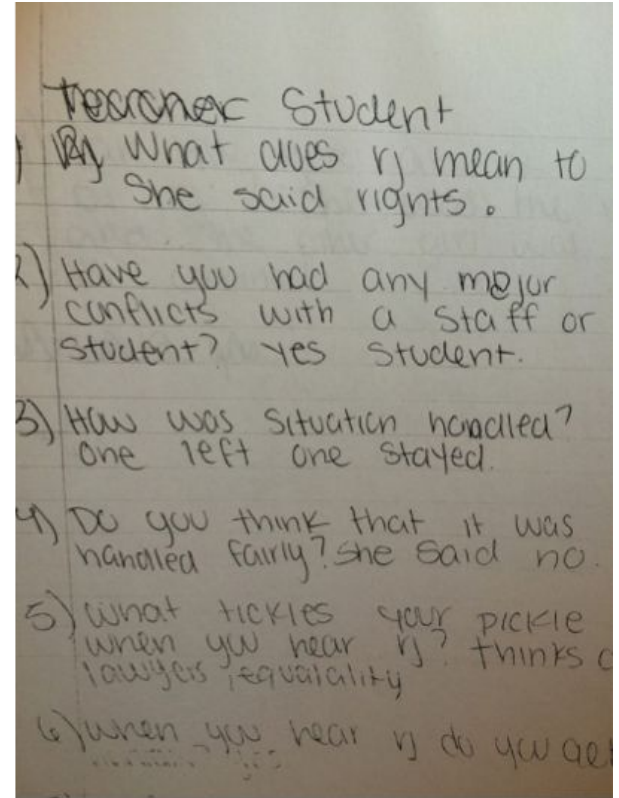 Student
What does rj mean to
She said rights.
2) Have you had any major
conflicts with a staff or
student? yes student.
3) How was situation handled?
one left one stayed.
4) Do you think that it was
handled fairly? she said no.
5) what tickles your pickle
when you hear rj? thinks
lawyers, equalality
6) when you hear rj do you